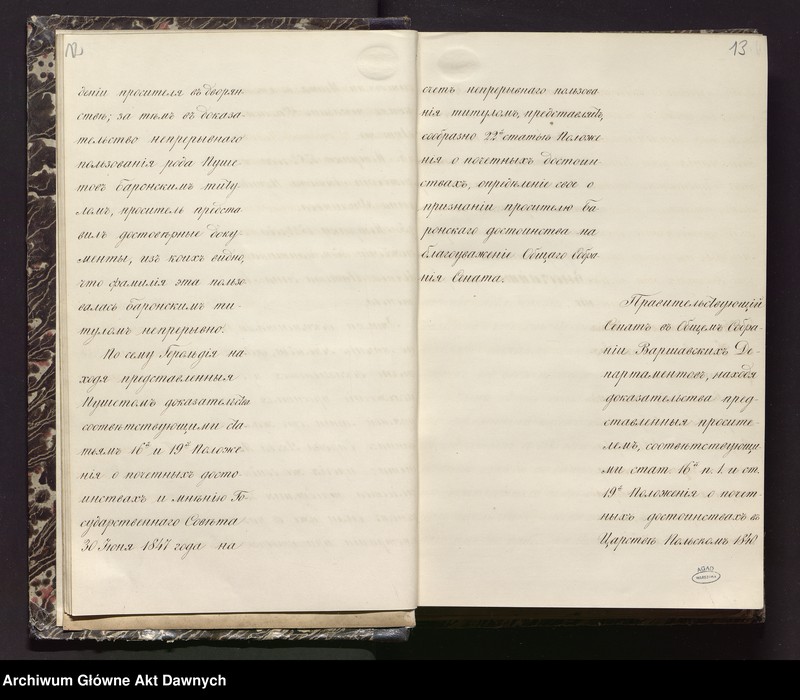 12
деніи просителя въ дворян-
ствѣ; за тѣмъ въ доказа-
тельство непрерывнаго
пользованія рода Пуше-
товъ баронскимъ титу-
ломъ, проситель предста-
вилъ достовѣрные доку-
менты, изъ коихъ видно,
что фамилія эта пользо
валась баронскимъ ти-
туломъ непрерывно.
По сему Герольдія на-
ходя представленныя
Пушетомъ доказательства
соотвѣтствующими ста-
тьямъ 16й и 19й Положе-
нія о почетныхъ досто-
инствахъ и мнѣнію Го-
сударственнаго Совѣта
30 Іюня 1847 года на
13
счетъ непрерывнаго пользова
нія титуломъ, представляетъ,
сообразно 22й статьѣ Положе
нія о почетныхъ достоин
ствахъ, опредѣленіе свое о
признаніи просителю ба
ронскаго достоинства на
благоуваженіе Общаго Собра
нія Сената.
Правительствующій
Сенатъ въ Общемъ Собра-
ніи Варшавскихъ Де-
партаментовъ, находя
доказательства пред-
ставленныя просите-
лемъ, соотвѣтствующи
ми стат. 16й п. 1. и ст.
19й Положенія о почет-
ныхъ достоинствахъ въ
Царствѣ Польскомъ 1840
AGAD
WARSZAWA
Archiwum Główne Akt Dawnych